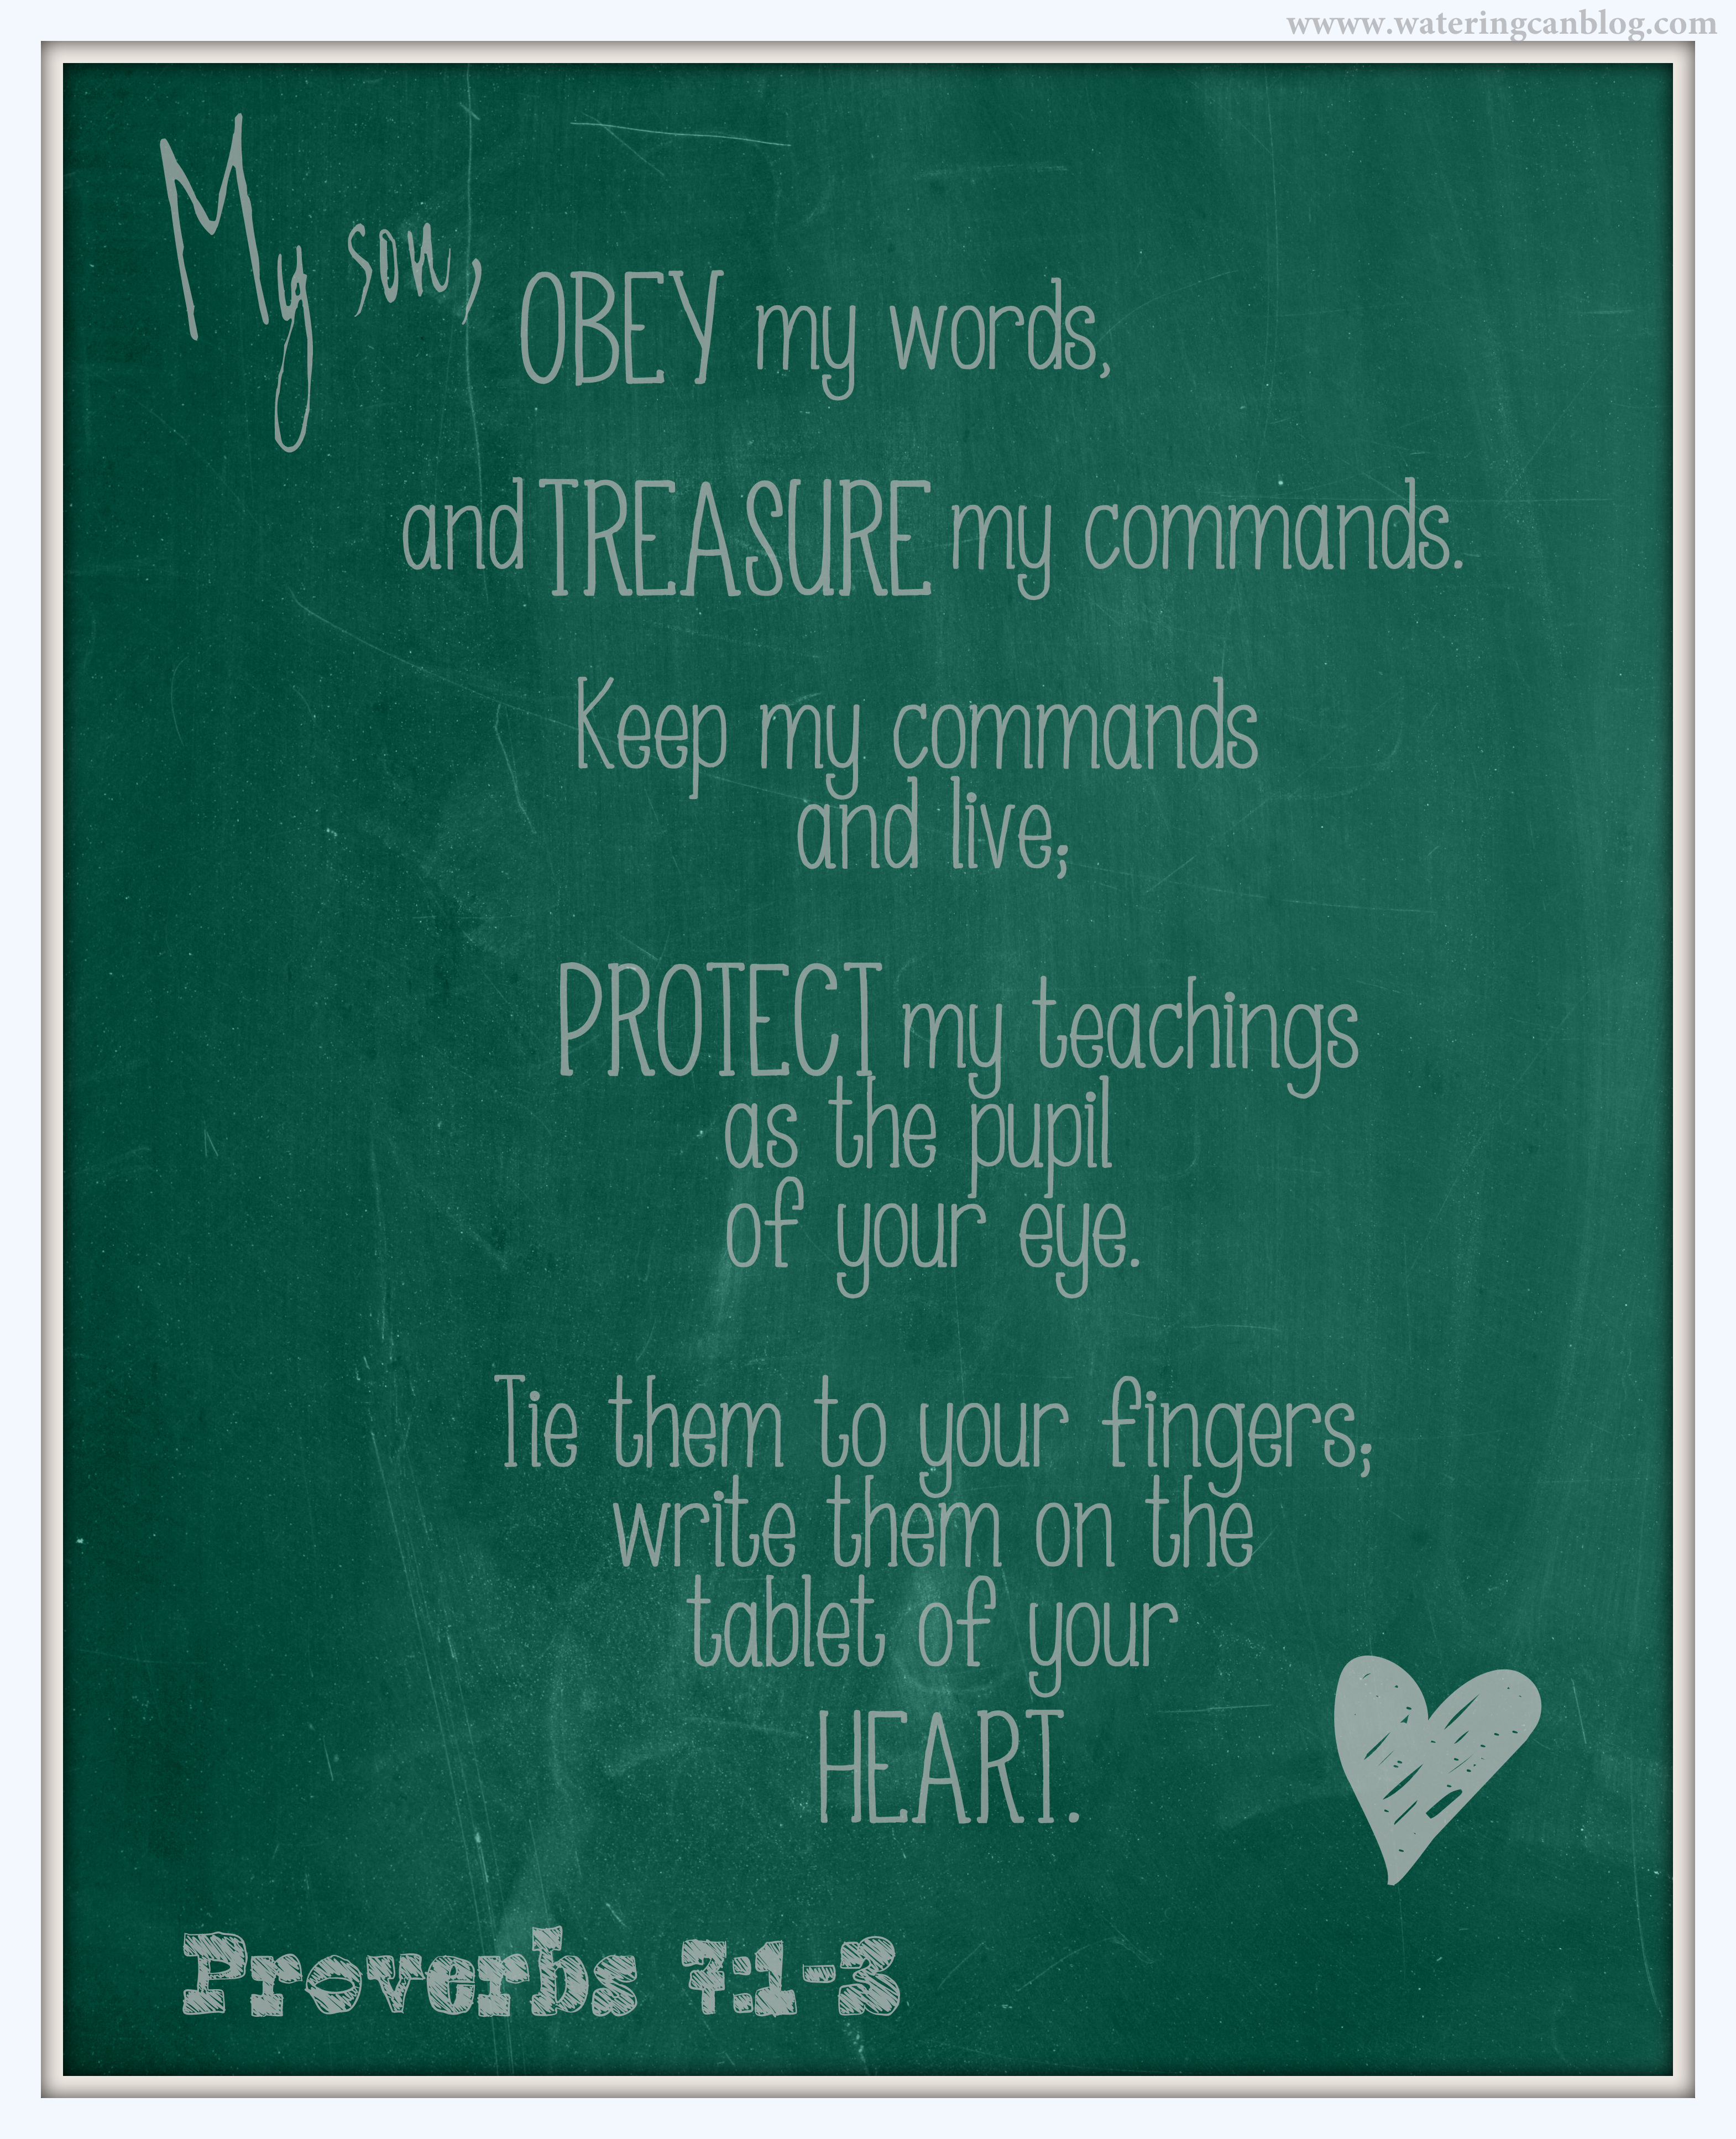 wwww.wateringcanblog.com
My son,
OBEY my words,
and TREASURE my commands.
Keep my commands
and live;
PROTECT my teachings
as the pupil
of your eye.
Tie them to your fingers;
write them on the
tablet of your
HEART.
Proverbs 7:1-3